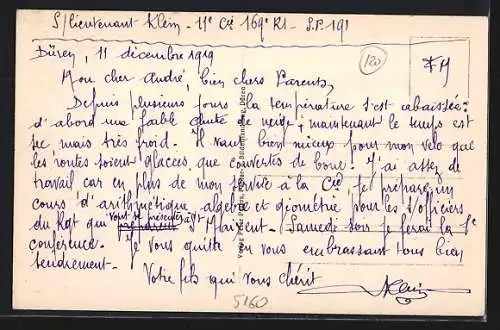 S/lieutenant Klein - 11e Cie 169e RI - S.P. 191
Düren, 11 décembre 1919
120
FM
Mon cher André, bien chers Parents,
Depuis plusieurs jours la température s'est abaissée :
d'abord une faible chute de neige ; maintenant le temps est
sec, mais très froid. Il vaut bien mieux pour mon velo que
les routes soient glacées, que couvertes de boue. J'ai assez de
travail car en plus de mon service à la Cie, je prépare un
cours d'arithmétique, algèbre et géométrie pour les s/officiers
du Rgt qui vont se présenter à St Maixent. Samedi soir je ferai la 1e
conférence. Je vous quitte en vous embrassant tous bien
tendrement.
Votre fils qui vous chérit
Klein
5160